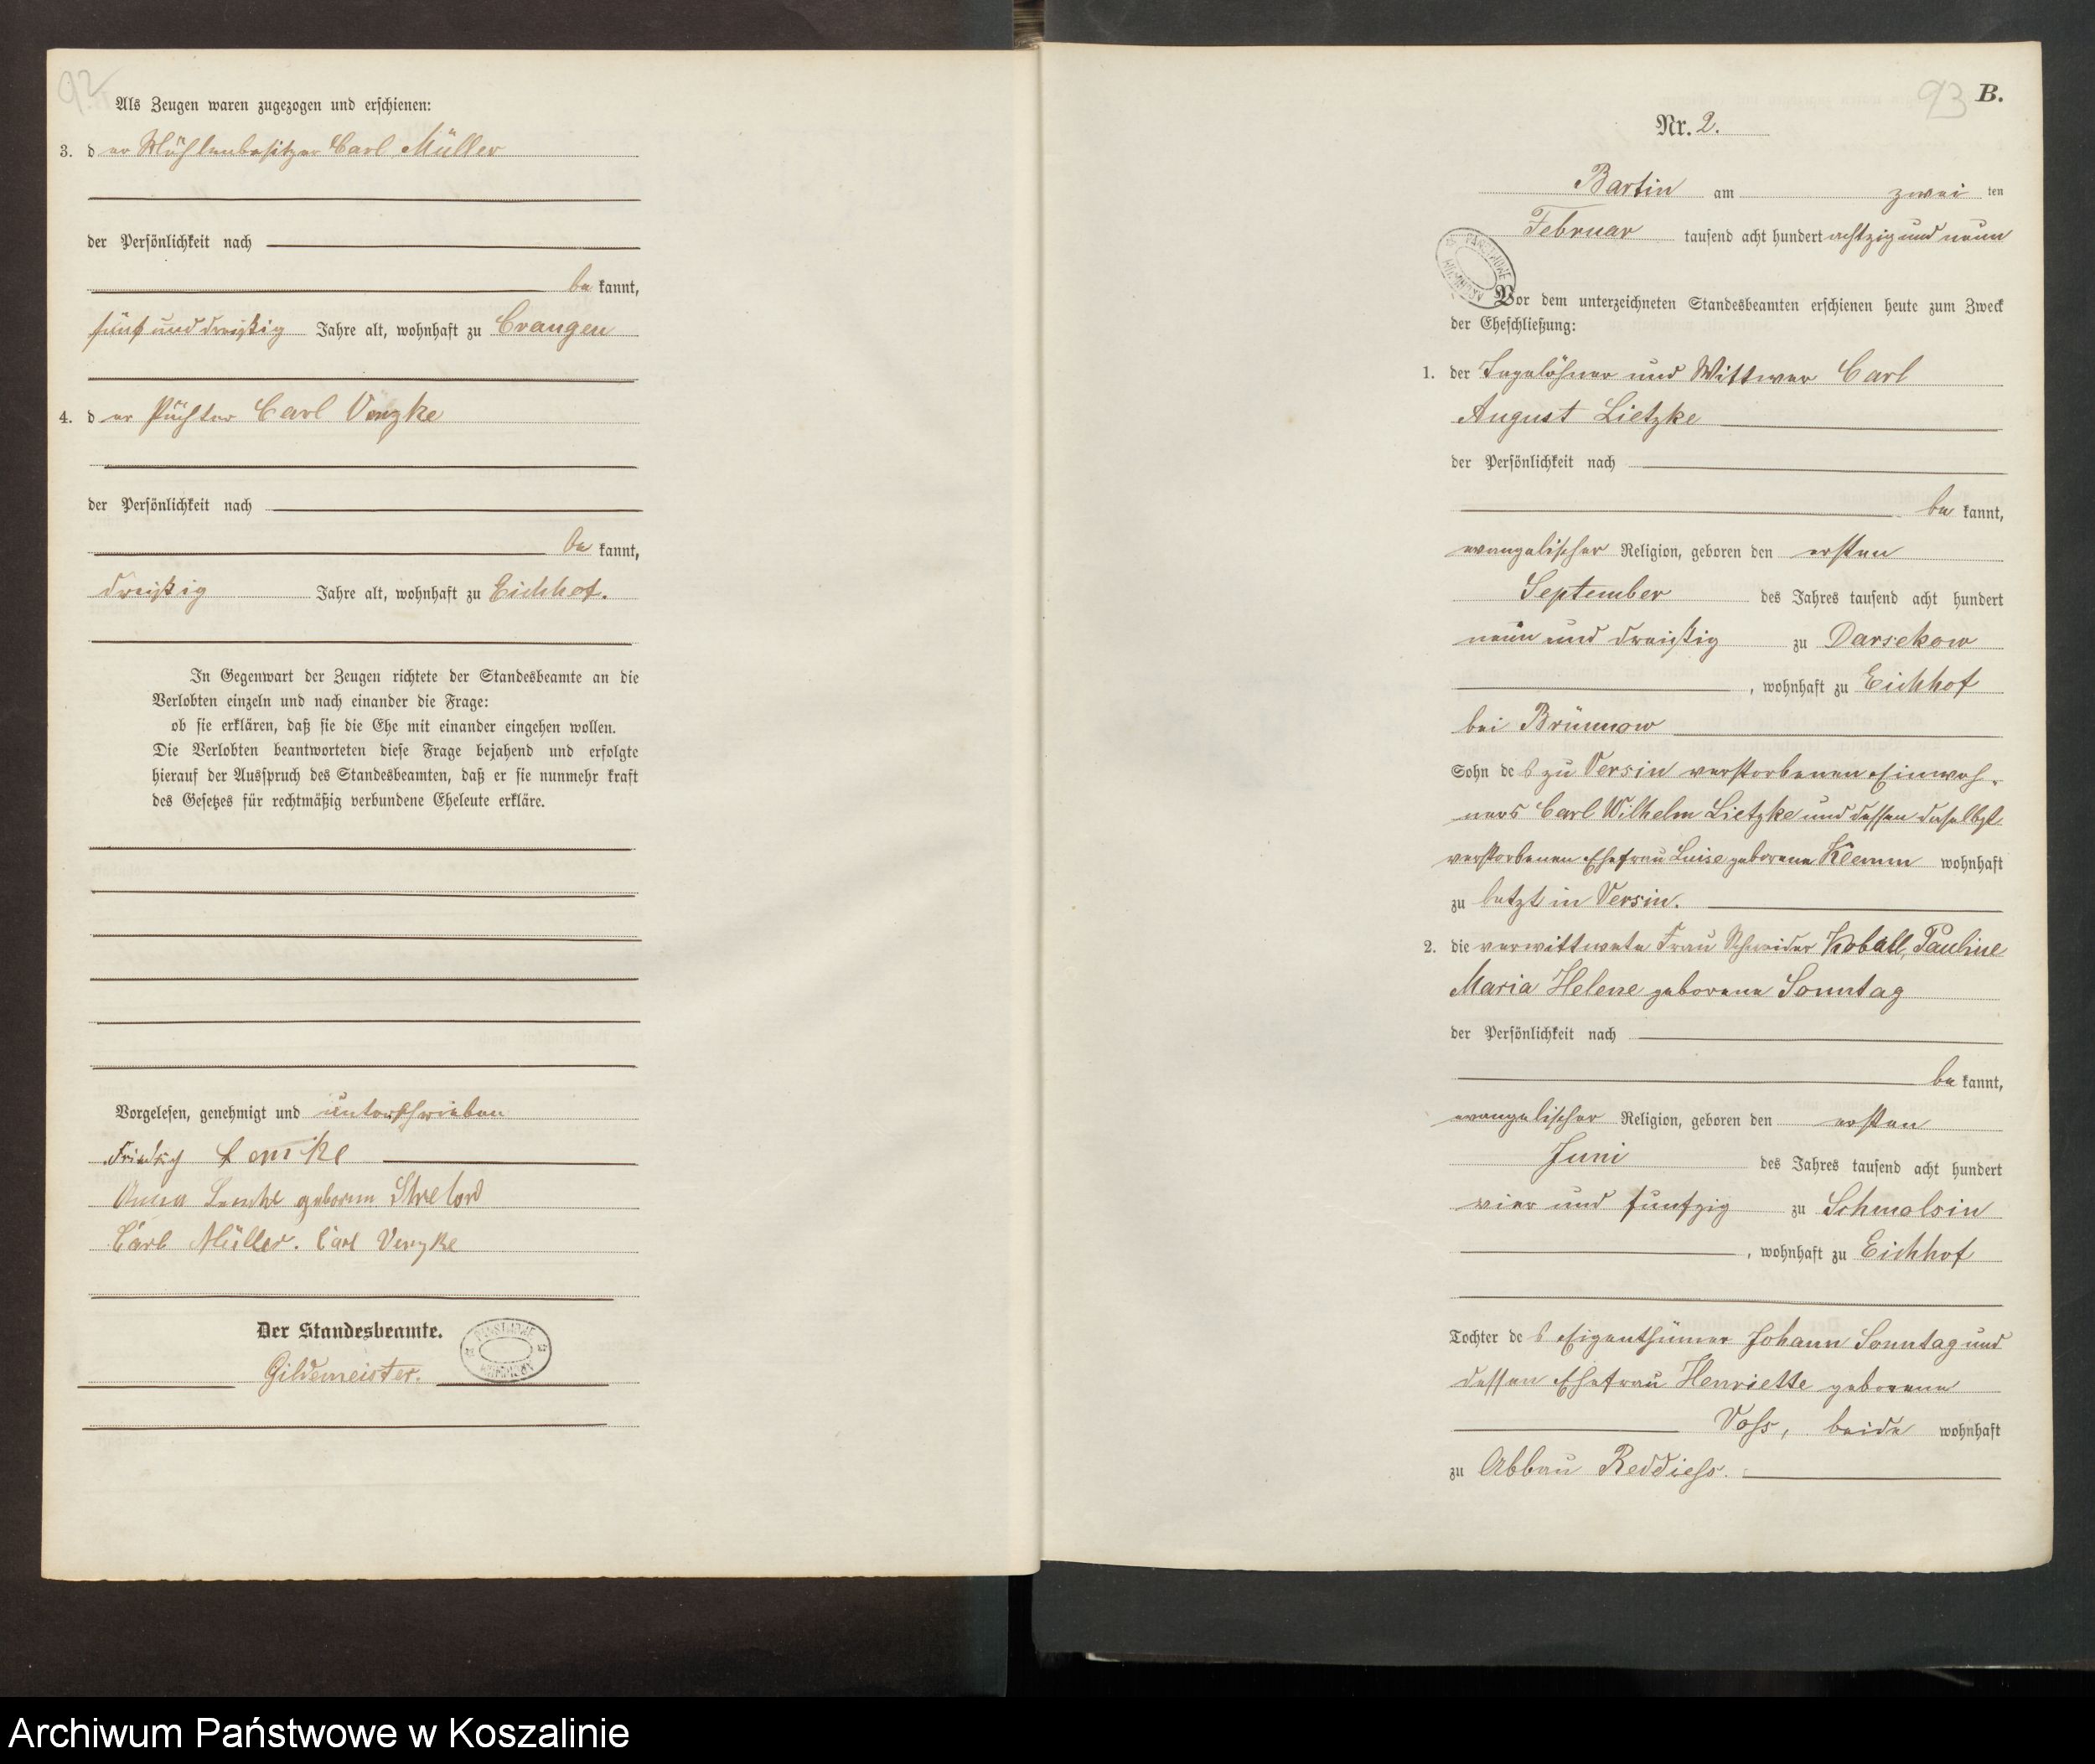 92
Als Zeugen waren zugezogen und erschienen:
3. der Mühlenbesitzer Carl Müller
der Persönlichkeit nach
bekannt,
fünf und dreißig Jahre alt, wohnhaft zu Crangen
4. der Pächter Carl Venzke
der Persönlichkeit nach
bekannt,
dreißig Jahre alt, wohnhaft zu Eichhof.
In Gegenwart der Zeugen richtete der Standesbeamte an die
Verlobten einzeln und nach einander die Frage:
ob sie erklären, daß sie die Ehe mit einander eingehen wollen.
Die Verlobten beantworteten diese Frage bejahend und erfolgte
hierauf der Ausspruch des Standesbeamten, daß er sie nunmehr kraft
des Gesetzes für rechtmäßig verbundene Eheleute erkläre.
Vorgelesen, genehmigt und unterschrieben
Friedrich Lemke
Anna Lemke geborene
Carl Müller. Carl Venzke
Der Standesbeamte.
Gildemeister.
93 B.
Nr. 2.
Bartin am zwei ten
Februar tausend acht hundert achtzig und neun
Vor dem unterzeichneten Standesbeamten erschienen heute zum Zweck
der Eheschließung:
1. der Tagelöhner und Wittwer Carl
August Lietzke
der Persönlichkeit nach
bekannt,
evangelischer Religion, geboren den ersten
September des Jahres tausend acht hundert
neun und dreißig zu Darsekow
, wohnhaft zu Eichhof
bei Brünnow
Sohn des zu Versin verstorbenen Einwoh-
ners Carl Wilhelm Lietzke und dessen daselbst
verstorbenen Ehefrau Luise geborene Klemm wohnhaft
zu letzt in Versin.
2. die verwittwete Frau Schneider Koball, Pauline
Maria Helene geborene Sonntag
der Persönlichkeit nach
bekannt,
evangelischer Religion, geboren den ersten
Juni des Jahres tausend acht hundert
vier und funfzig zu Schmolsin
, wohnhaft zu Eichhof
Tochter des Eigenthümer Johann Sonntag und
dessen Ehefrau Henriette geborene
Voss, beide wohnhaft
zu Abbau Reddiess.
Archiwum Państwowe w Koszalinie